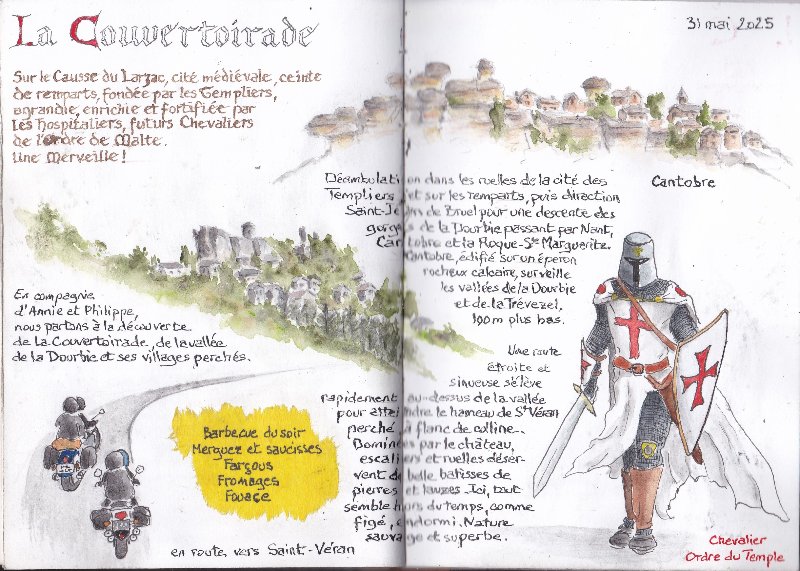 La Couvertoirade
31 mai 2025
Sur le Causse du Larzac, cité médiévale, ceinte
de remparts, fondée par les Templiers,
agrandie, enrichie et fortifiée par
les Hospitaliers, futurs Chevaliers
de l'Ordre de Malte.
Une Merveille !
Cantobre
Déambulation dans les ruelles de la cité des
Templiers et sur les remparts, puis direction
Saint-Jean de Bruel pour une descente des
gorges de la Dourbie passant par Nant,
Cantobre et la Roque-Ste Marguerite.
Cantobre, édifié sur un éperon
rocheux calcaire, surveille
les vallées de la Dourbie
et de la Trévezel,
100m plus bas.
En compagnie
d'Annie et Philippe,
nous partons à la découverte
de La Couvertoirade, de la vallée
de la Dourbie et ses villages perchés.
Une route
étroite et
sinueuse s'élève
rapidement au-dessus de la vallée
pour atteindre le hameau de St Véran
perché à flanc de colline.
Dominés par le château,
escaliers et ruelles déser-
vent de belle batisses de
pierres et lauzes. Ici, tout
semble hors du temps, comme
figé, endormi. Nature
sauvage et superbe.
Barbecue du soir
Merguez et saucisses
Farçous
Fromages
Fouace
en route, vers Saint-Véran
Chevalier
Ordre du Temple